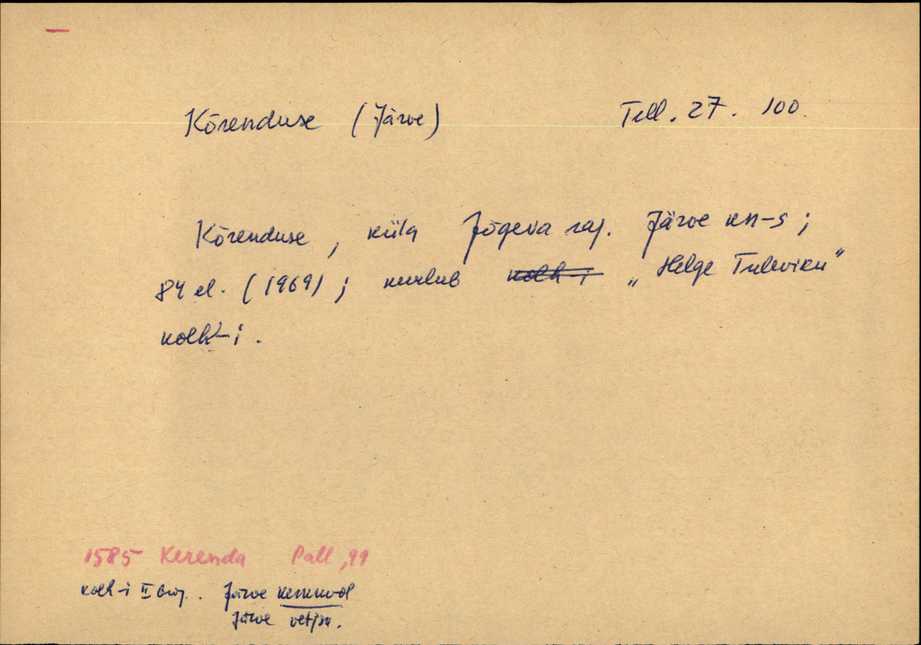 Kõrenduse (Järve) Tell. 27. 100.
Kõrenduse, küla Jõgeva raj. Järve kn-s;
84 el. (1969); kuulub kolh-i „Helge Tuleviku"
kolh-i.
1585 Kerenda Pall, 99
kolh-i II brig. Järve keskusol
Järve